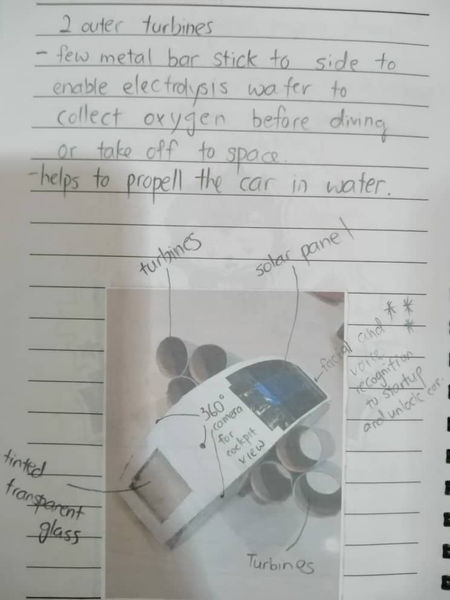 2 outer turbines
- few metal bar stick to side to
enable electrolysis water to
collect oxygen before diving
or take off to space.
- helps to propell the car in water.
turbines
solar panel
facial and
voice
recognition
to startup
and unlock car.
360°
camera
for
cockpit
view
tinted
transparent
glass
Turbines